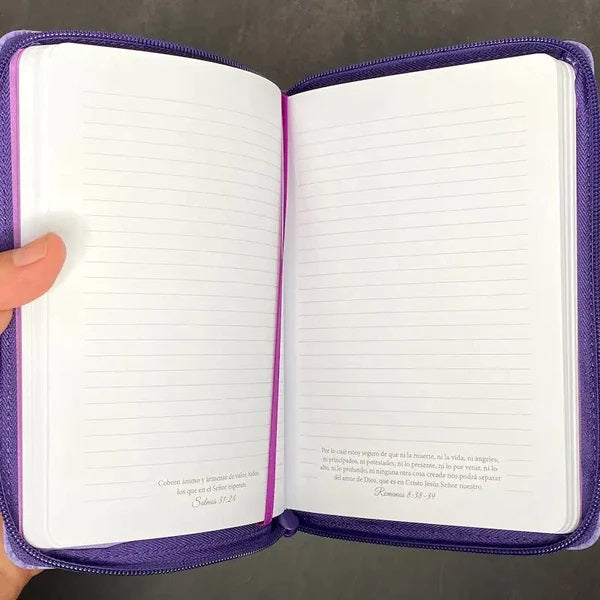 Cobren ánimo y ármense de valor, todos
los que en el Señor esperan.
Salmos 31:24
Por lo cual estoy seguro de que ni la muerte, ni la vida, ni ángeles,
ni principados, ni potestades, ni lo presente, ni lo por venir, ni lo
alto, ni lo profundo, ni ninguna otra cosa creada nos podrá separar
del amor de Dios, que es en Cristo Jesús Señor nuestro.
Romanos 8:38-39